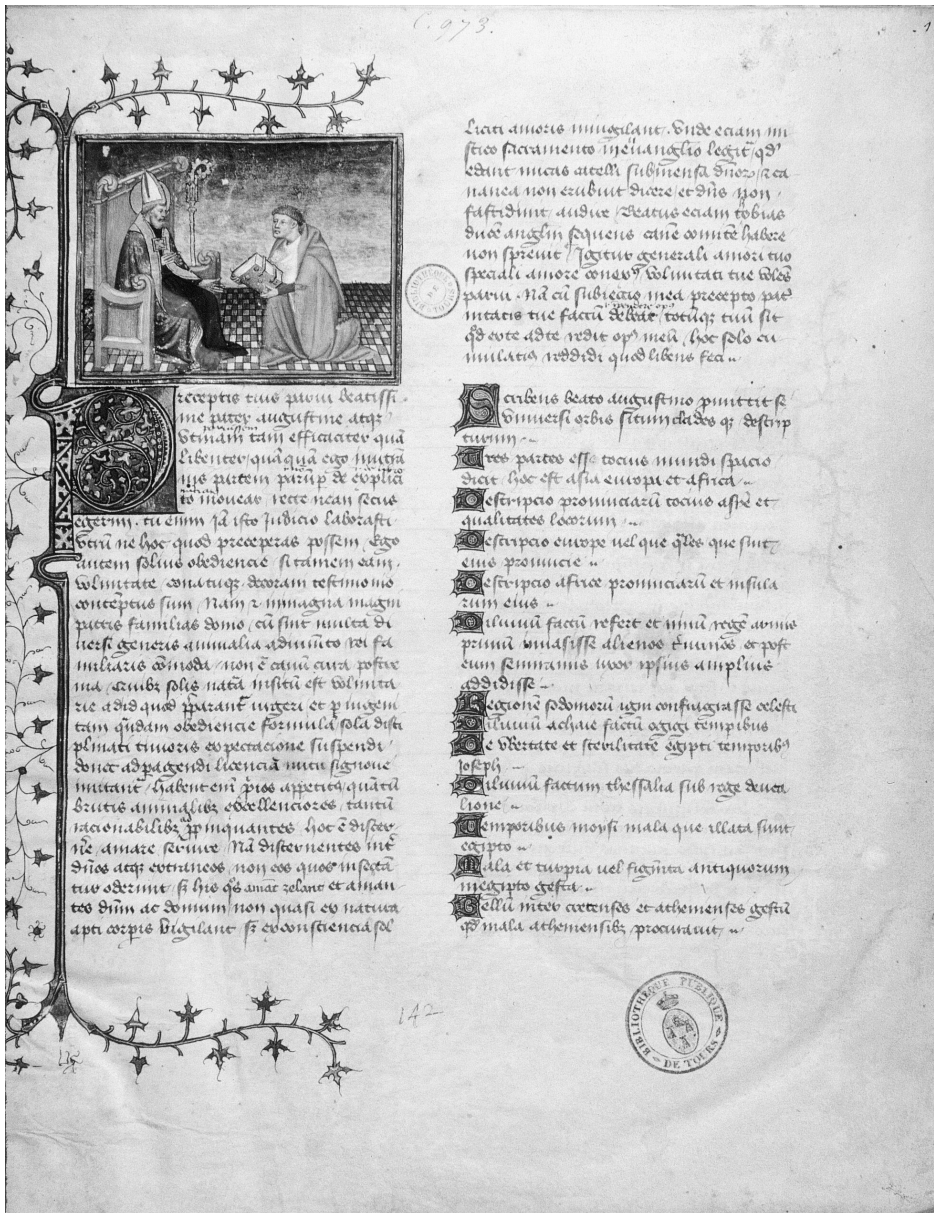 C. 973.
1
Preceptis tuis parui beatissi
me pater augustine atq
vtinam tam efficaciter quā
libenter quāquā ego
partem de explici
to mouear, recte nean secus
egerim. tu enim iā isto iudicio laborasti
vtrū ne hoc quod preceperas possem. Ego
autem solius obediencie si tamen eam
voluntate conatuqz decoraui testimonio
contētus sum. Nam & in magna magni
patris familias domo, cū sint multa di
uersi generis animalia adiumēto rei fa
miliaris cōmoda, non ē canū cura postre
ma. Quibz solis natā insitū est volunta
rie ad id quod urgeri et p ingeni
tam quādam obediencie formulā sola disci
plinati timoris expectacione suspendi
donec ad pagendi licenciā nutu signoue
mittant. habent em ppios appetitus quātū
brutis animalibz excellenciores, tantū
racionabilibz ppinquantes, hoc ē discer
ne amare seruire. Nā discernentes int
dn̄os atqz extraneos non eos quos insectā
tur oderunt, s; his q̄s amāt zelant et aman
tes dn̄m ac domum non quasi ex natura
apti corpis vigilant s; ex consciencia sol
liciti amoris inuigilant. Vnde eciam mi
stico sacramento in euanglio legit qd
edant micas catelli sub mensa dn̄or, & ca
nanea non erubuit dicere, et dn̄s non
fastidiuit audire. Beatus eciam tobias
ducē anglm sequens canē comitē habere
non spreuit. Igitur generali amori tuo
speciali amore conexus voluntati tue volēs
parui. Nā cū subiectio mea precepto pat
nitatis tue factū debeat, totūqz tuū sit
qd ex te ad te redit opus meū, hoc solo cu
mulatius reddidi quod libens feci
Scribens beato augustino pmittit se
vniuersi orbis situm clades qz descrip
turum
Tres partes esse tocius mundi spacio
dicit, hoc est asia europa et africa
Descripcio prouinciarū tocius asye et
qualitates locorum
Descripcio europe vel que qles que sint
eius prouincie
Descripcio africe prouinciarū et insula
rum eius
Diluuiū factū refert et ninū regē armis
primū inuasisse alienos tminos et post
eum semiramis uxor ipsius amplius
addidisse
Regionē sodomorū igni conflagrasse celesti
Diluuiū achaie factū ogigi tempibus
De vbertate et sterilitate egipti temporibus
Joseph
Diluuiū factum thessalia sub rege deuca
lione
Temporibus moysi mala que illata sunt
egipto
Mala et turpia vel figmta antiquorum
in egipto gesta
Bellū inter cretenses et athenienses gestū
qd mala atheniensibz procurauit
142
BIBLIOTHÈQUE PUBLIQUE
DE TOURS